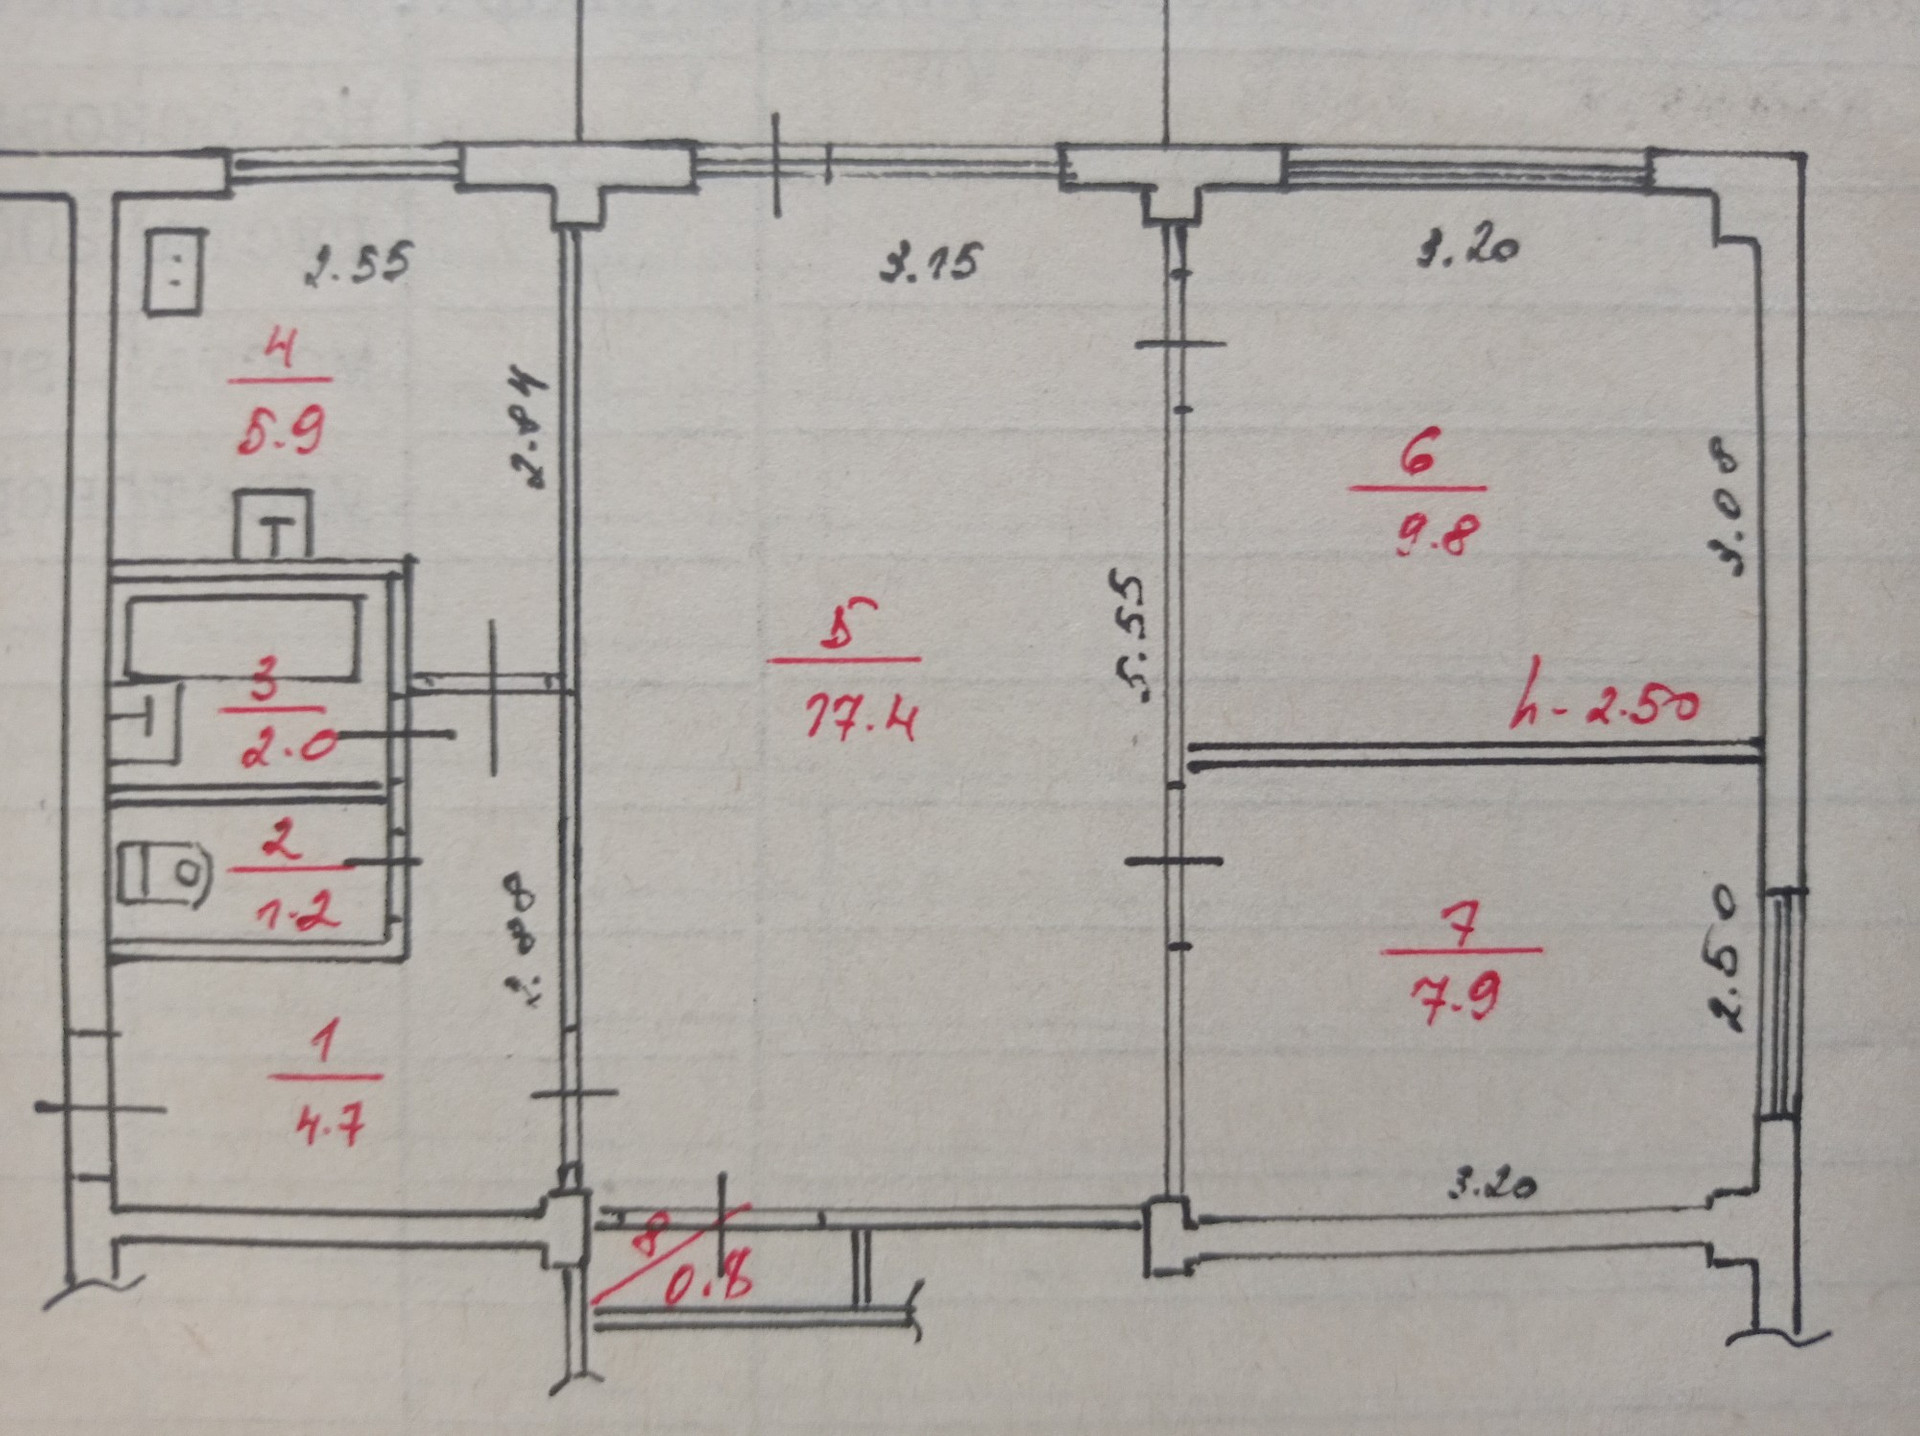 2.55
3.15
3.20
4
5.9
2.84
6
9.8
3.08
5
17.4
5.55
h-2.50
3
2.0
2
1.2
2.88
7
7.9
2.50
1
4.7
3.20
8
0.8